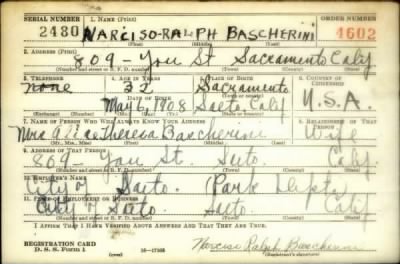 SERIAL NUMBER 1. NAME (Print) ORDER NUMBER
2480 NARCISO-RALPH BASCHERINI 4602
(First) (Middle) (Last)
2. ADDRESS (Print)
809-You St Sacramento Calif
(Number and street or R. F. D. number) (Town) (County) (State)
3. TELEPHONE 4. AGE IN YEARS 5. PLACE OF BIRTH 6. COUNTRY OF CITIZENSHIP
none 32 Sacramento
DATE OF BIRTH
May 6, 1908 Sacto, Calif U.S.A.
(Exchange) (Number) (Mo.) (Day) (Yr.) (State or country)
7. NAME OF PERSON WHO WILL ALWAYS KNOW YOUR ADDRESS 8. RELATIONSHIP OF THAT PERSON
Mrs Theresa Bascherini Wife
(Mr., Mrs., Miss) (First) (Middle) (Last)
9. ADDRESS OF THAT PERSON
809-You St. Sacto. Calif.
(Number and street or R. F. D. number) (Town) (County) (State)
10. EMPLOYER'S NAME
City of Sacto. (Park Dept)
11. PLACE OF EMPLOYMENT OR BUSINESS
City of Sacto. Sacto. Calif
(Number and street or R. F. D. number) (Town) (County) (State)
I AFFIRM THAT I HAVE VERIFIED ABOVE ANSWERS AND THAT THEY ARE TRUE.
REGISTRATION CARD
D. S. S. Form 1 (over) Narciso Ralph Bascherini